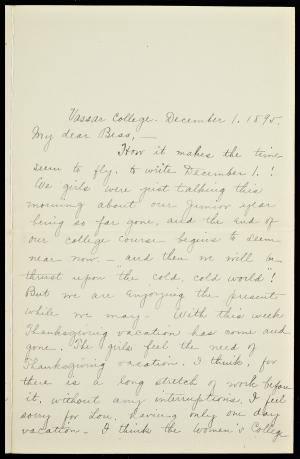 Vassar College. December 1. 1895.
My dear Bess, —
How it makes the time
seem to fly, to write December 1.!
We girls were just talking this
morning about our Junior year
being so far gone, and the end of
our college course begins to seem
near now, — and then we will be
thrust upon "the cold, cold world"!
But we are enjoying the present
while we may. With this week
Thanksgiving vacation has come and
gone. The girls feel the need of
Thanksgiving vacation, I think, for
there is a long stretch of work before
it, without any interruptions. I feel
sorry for Lou, having only one day
vacation. I think the Women's College